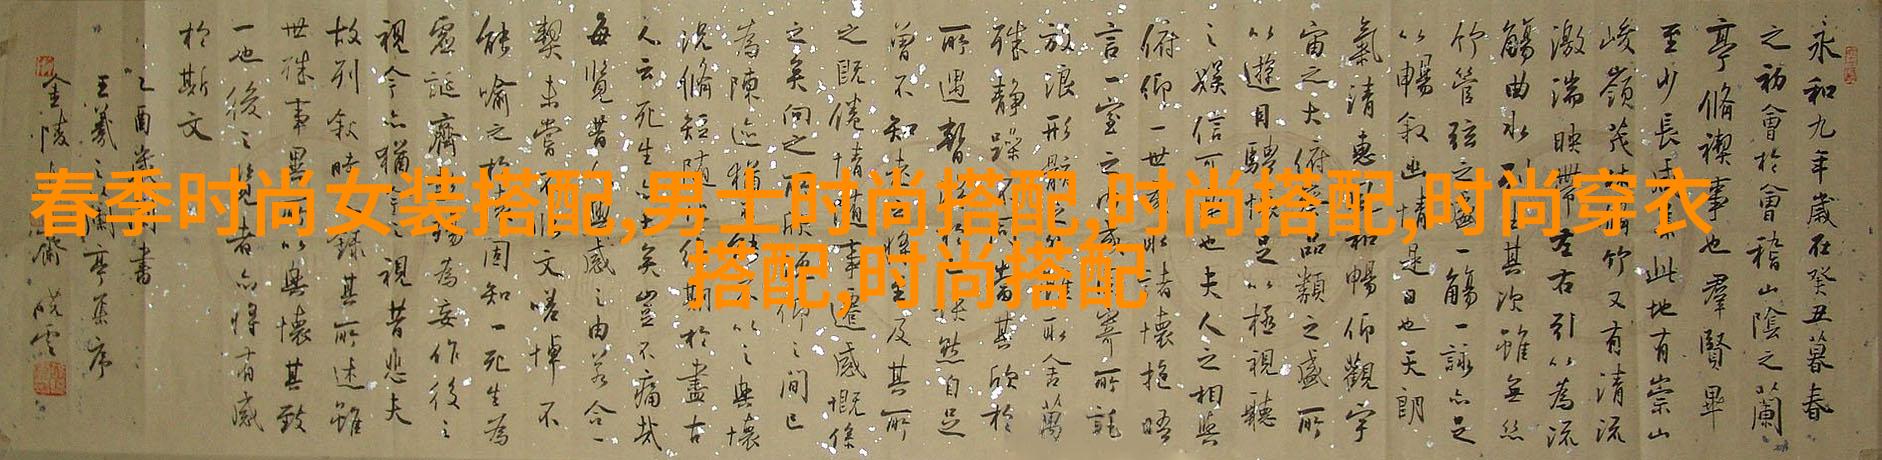 春季时尚女装搭配,男士时尚搭配,时尚搭配,时尚穿衣
搭配,时尚搭配
永和九年歲在癸丑暮春
之初會於會稽山陰之蘭
亭脩禊事也羣賢畢
至少長咸集此地有崇山
峻嶺茂林脩竹又有清流
激湍映帶左右引以為流
觴曲水列坐其次雖無絲
竹管弦之盛一觴一詠亦足
以暢敘幽情是日也天朗
氣清惠風和暢仰觀宇
宙之大俯察品類之盛所
以遊目騁懷足以極視聽
之娛信可樂也夫人之相與
俯仰一世或取諸懷抱晤
言一室之內或因寄所託
放浪形骸之外雖取舍萬
殊靜躁不同當其欣於
所遇暫得於己快然自足
曾不知老之將至及其所
之既倦情隨事遷感慨係
之矣向之所欣俯仰之間已
為陳迹猶不能不以之興懷
況脩短隨化終期於盡古
人云死生亦大矣豈不痛哉
每覽昔人興感之由若合一
契未嘗不臨文嗟悼不
能喻之於懷固知一死生為
虛誕齊彭殤為妄作後之
視今亦猶今之視昔悲夫
故列敘時人錄其所述雖
世殊事異所以興懷其致
一也後之覽者亦將有感
於斯文
乙酉書
王羲之蘭亭集序
金陵齋